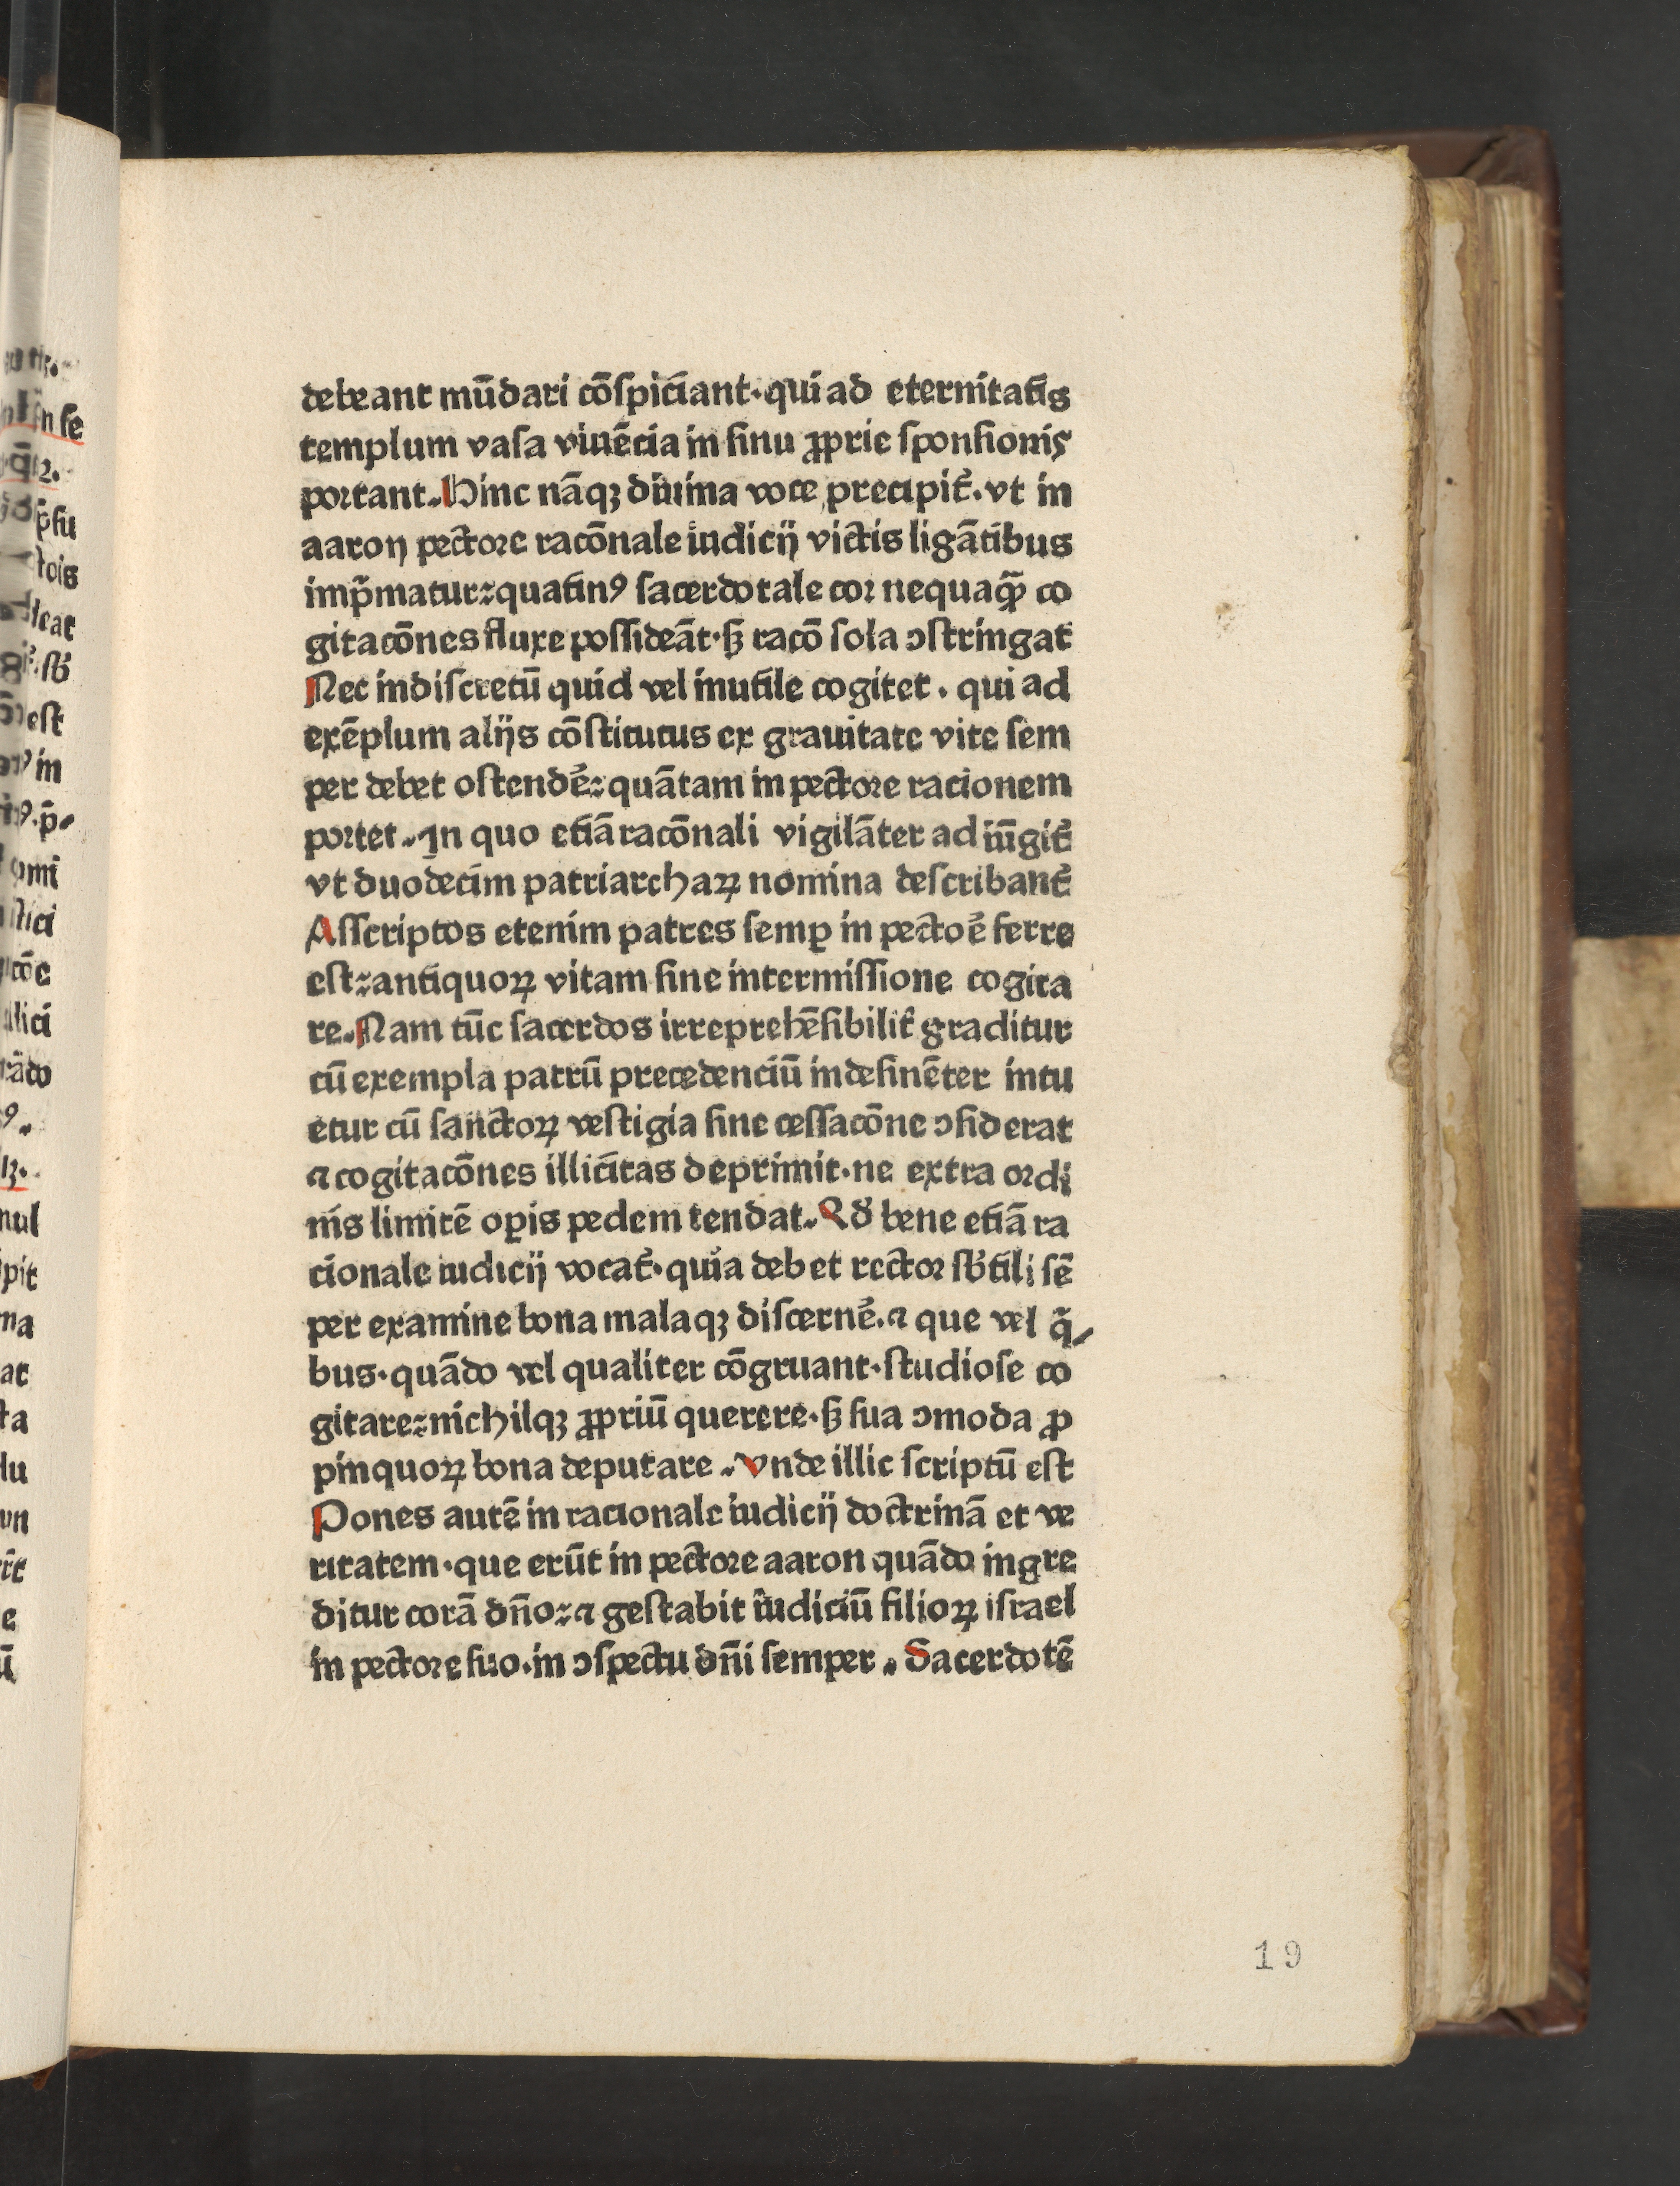 debeant mūdari cōſpiciant·qui ad eternitatis
templum vaſa viuēcia in ſinu ꝓprie ſponſionis
portant. Hinc nāqꝫ diuina voce precipit᷑. vt in
aaron pectore racōnale iudicij victis ligātibus
imp̄matur: quatinꝰ ſacerdotale cor nequaꝙ̄ co
gitacōnes fluxe poſſideāt·ſꝫ racō ſola ↄſtringat
Nec indiſcretū quid vel inutile cogitet . qui ad
exēplum alijs cōſtitutus ex grauitate vite ſem
per debet oſtendē: quātam in pectore racionem
portet. In quo etiā racōnali vigilāter ad iūgit᷑
vt duodecim patriarchaꝝ nomina deſcribant᷑
Aſſcriptos etenim patres ſemꝑ in pectoē ferre
eſt: antiquoꝝ vitam ſine intermiſſione cogita
re. Nam tūc ſacerdos irreprehēſibilit᷑ graditur
cū exempla patrū precedenciū indeſinēter intu
etur cū ſanctoꝝ veſtigia ſine ceſſacōne ↄſiderat
⁊ cogitacōnes illicitas deprimit·ne extra ordi
nis limitē oꝑis pedem tendat. Qd̓ bene etiā ra
cionale iudicij vocat᷑·quia debet rector ſb̓tili ſē
per examine bona malaqꝫ diſcernē. ⁊ que vel q̄
bus·quādo vel qualiter cōgruant·ſtudioſe co
gitare: nichilqꝫ ꝓpriū querere·ſꝫ ſua ↄmoda ꝓ
pinquoꝝ bona deputare . Vnde illic ſcriptū eſt
Pones autē in racionale iudicij doctrinā et ve
ritatem·que erūt in pectore aaron quādo ingre
ditur corā dn̄o: ⁊ geſtabit iudiciū filioꝝ iſrael
in pectore ſuo·in ↄſpectu dn̄i ſemper . Sacerdotē
19